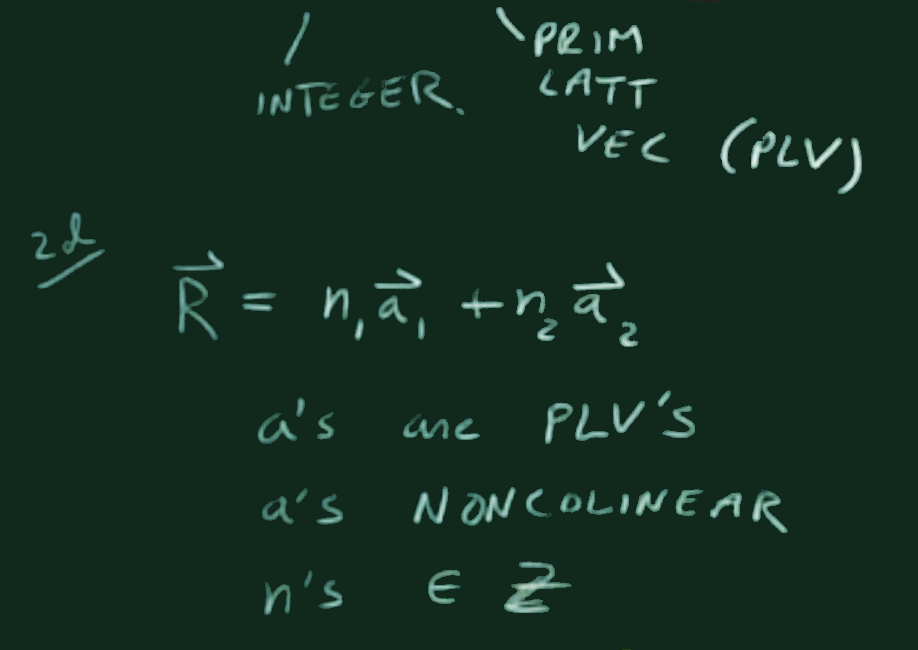 INTEGER. PRIM
LATT
VEC (PLV)
2d
R⃗ = n₁a⃗₁ + n₂a⃗₂
a's are PLV's
a's NONCOLINEAR
n's ∈ ℤ